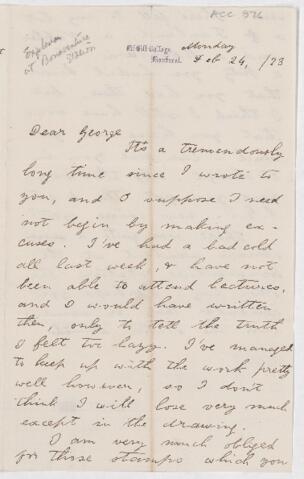 ACC 976
Explosion
at Bonaventure
Station
McGill College,
Montreal.
Monday
Feb 24, /93
Dear George
It's a tremendously
long time since I wrote to
you, and I suppose I need
not begin by making ex-
cuses. I've had a bad cold
all last week, & have not
been able to attend lectures,
and I would have written
then, only to tell the truth
I felt too lazy. I've managed
to keep up with the work pretty
well however, so I don't
think I will lose very much
except in the drawing.
I am very much obliged
for those stamps which you